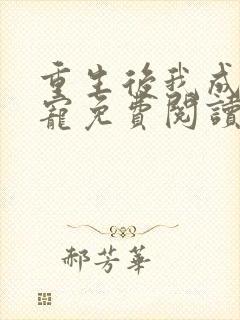 重生後我成
寵免費閱讀
郝芳華